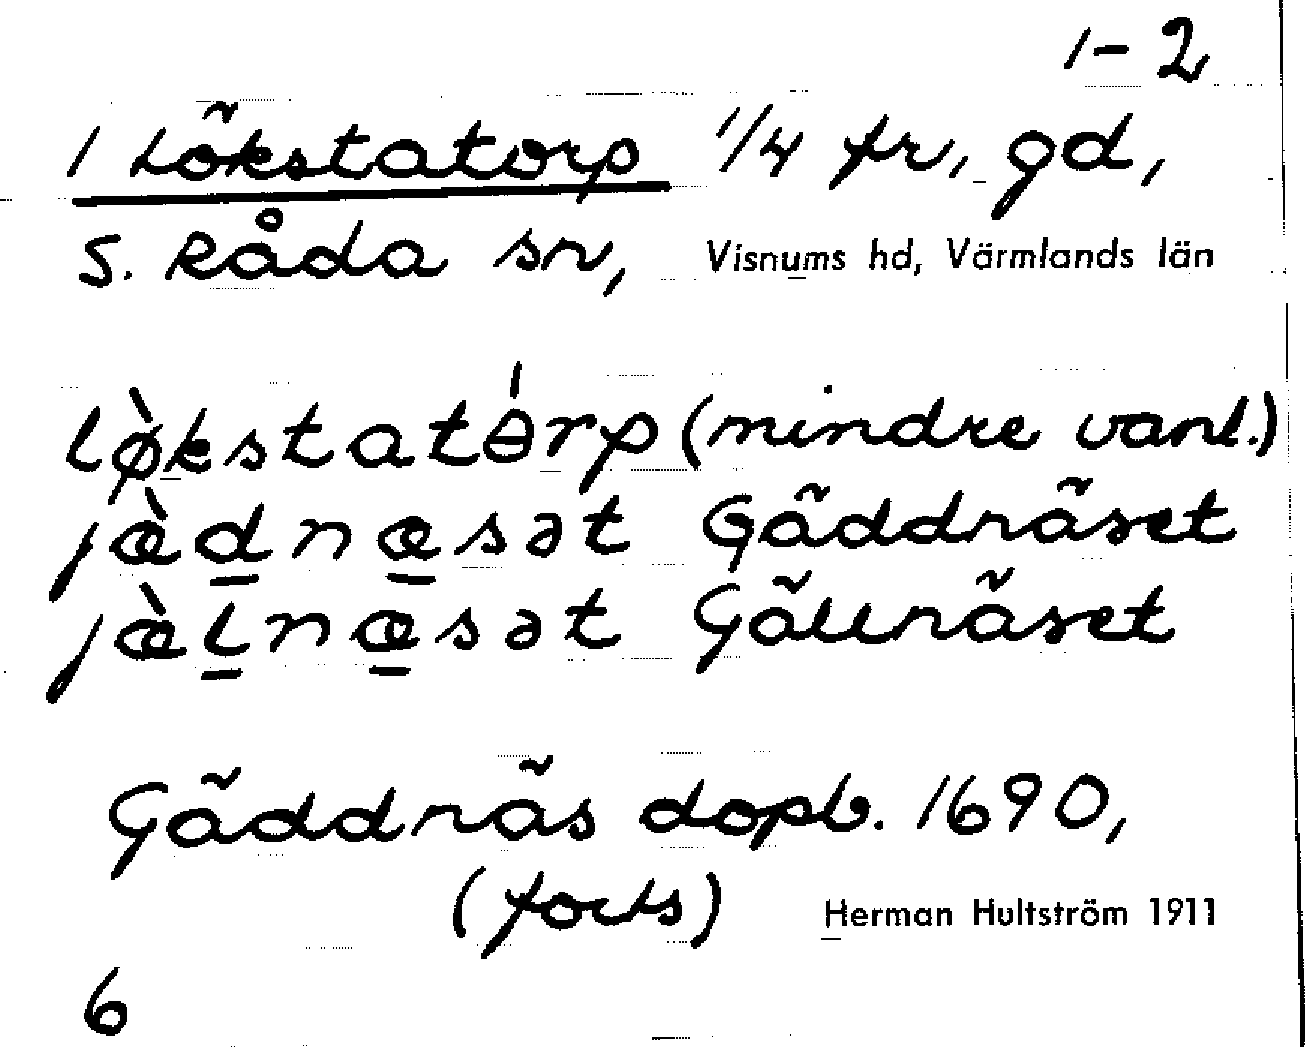 1-2
1 Lökstatorp 1/4 fr. gd,
S. Råda sn, Visnums hd, Värmlands län
lø̀kstatɵ́rp (mindre vanl.)
jæ̀dnæsət Gäddnäset
jæ̀lnæsət Gällnäset
Gäddnäs dopb. 1690,
(forts)
Herman Hultström 1911
6